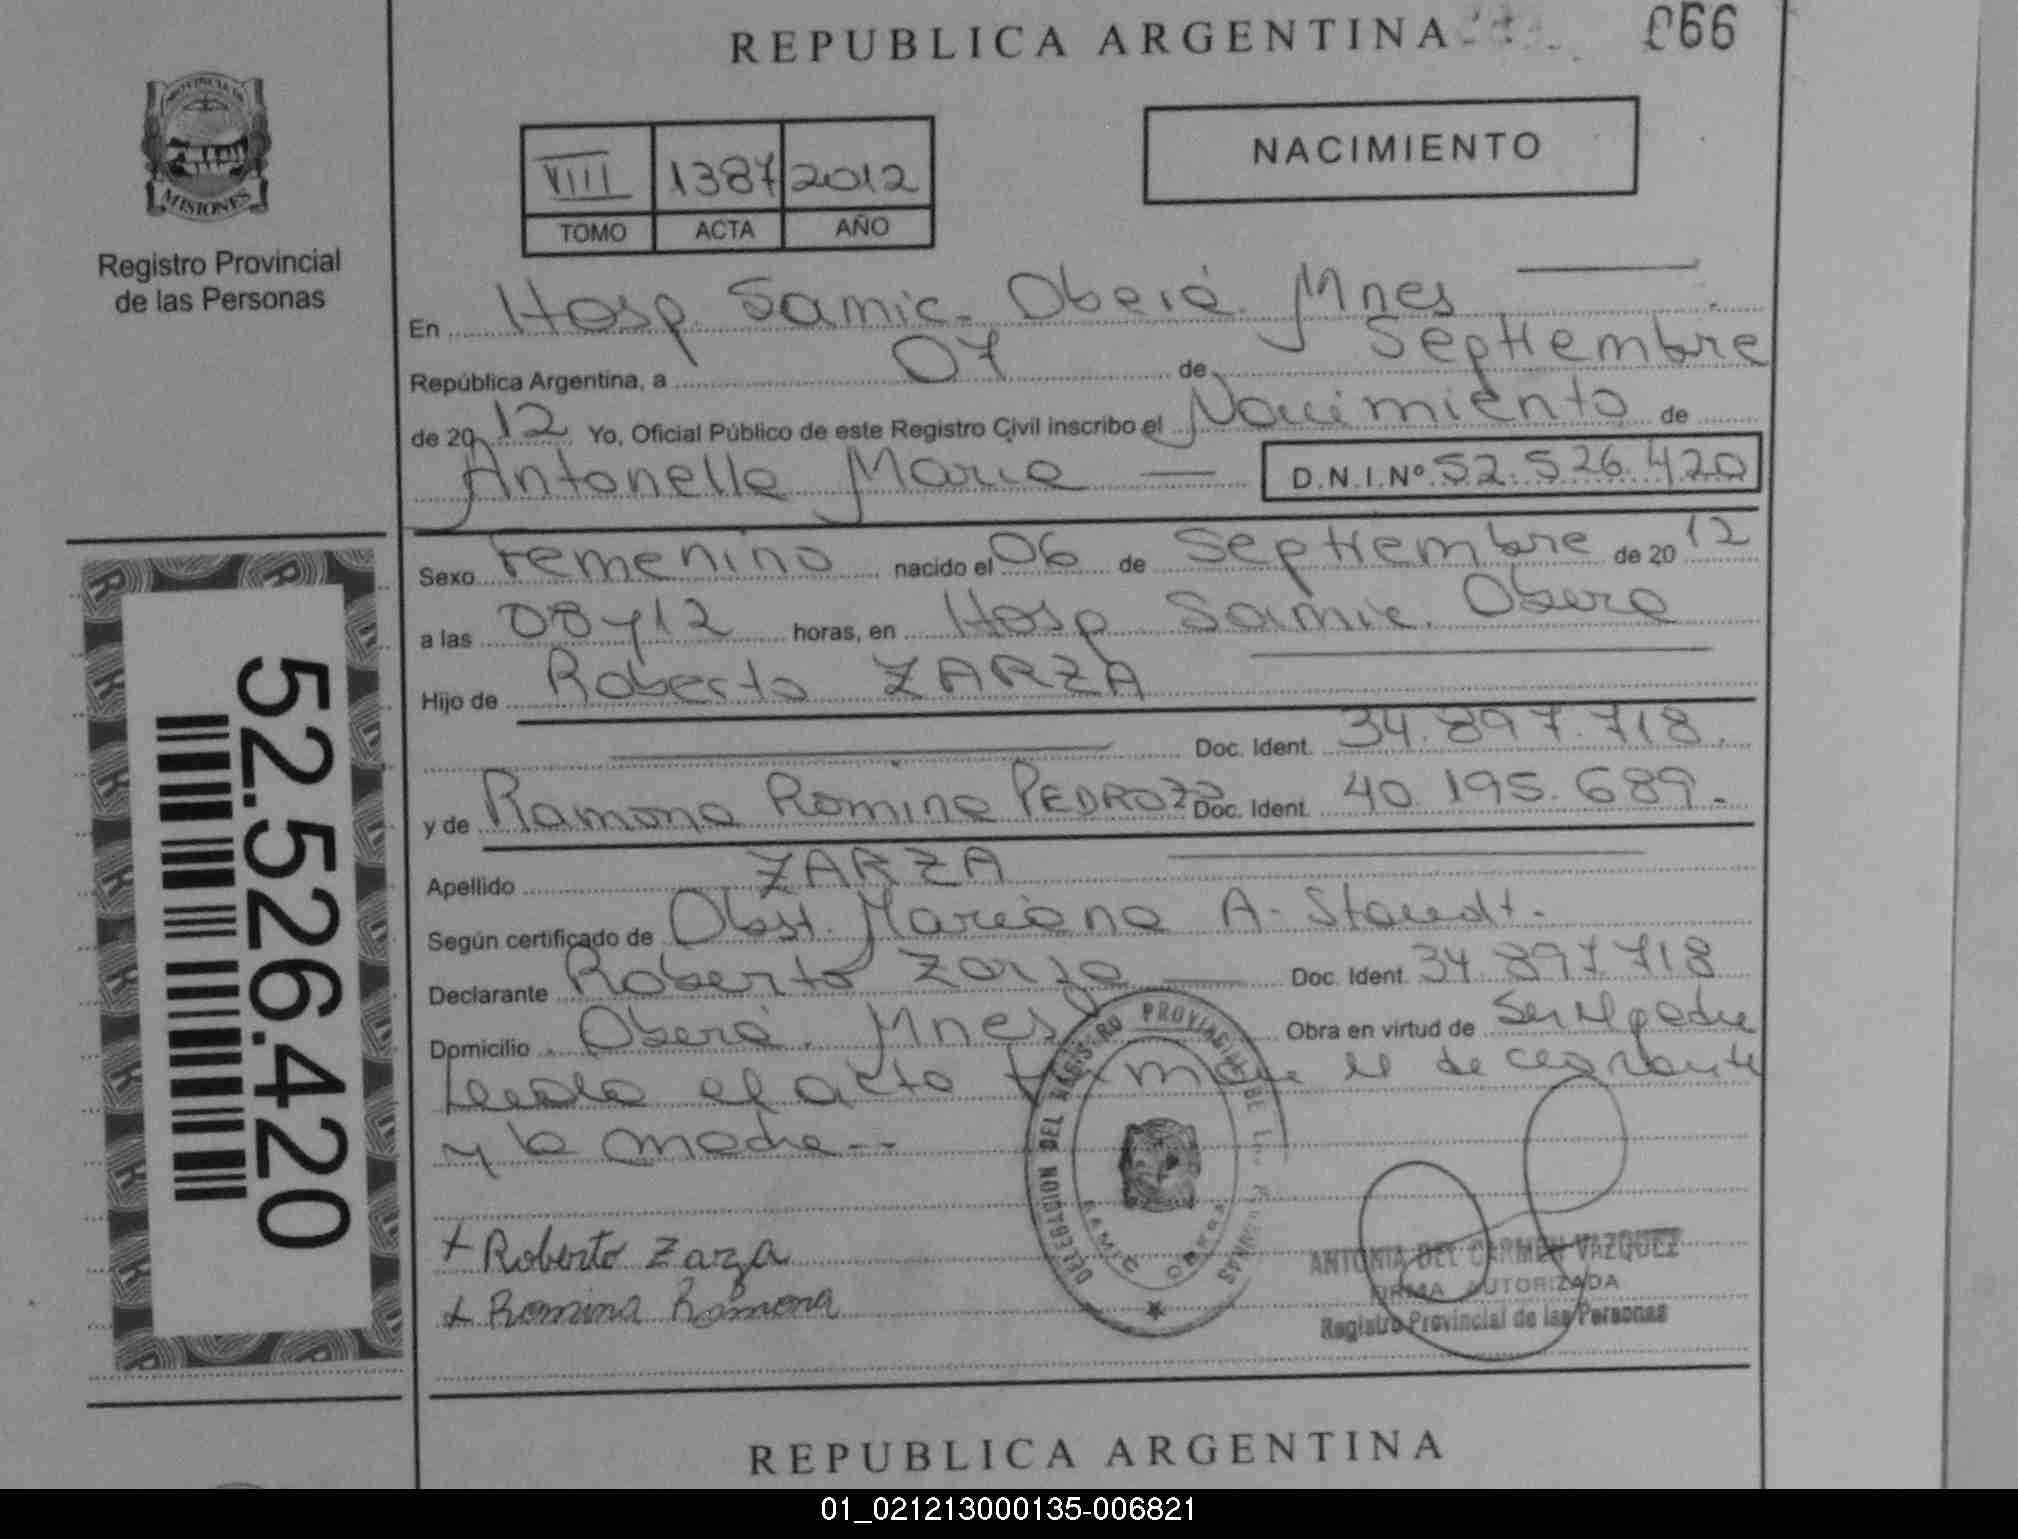 REPUBLICA ARGENTINA
066
PROVINCIA DE
MISIONES
Registro Provincial
de las Personas
NACIMIENTO
VIII 1387 2012
TOMO ACTA AÑO
En Hosp. Samic. Oberá. Mnes
República Argentina, a 07 de Septiembre
de 2012 Yo, Oficial Público de este Registro Civil inscribo el Nacimiento de
Antonella Maria D.N.I.Nº 52.526.420
Sexo Femenino nacido el 06 de Septiembre de 2012
a las 08 y 12 horas, en Hosp Samic. Obera
Hijo de Roberto ZARZA
Doc. Ident. 34.897.718.
y de Ramona Romina PEDROZO Doc. Ident. 40.195.689.-
Apellido ZARZA
Según certificado de Obst. Mariana A. Staudt.
Declarante Roberto Zarza Doc. Ident. 34.897.718
Domicilio Oberá. Mnes Obra en virtud de Ser el padre
Leida el acta firman el declarante
y la madre--
+ Roberto Zarza
+ Romina Ramona
DELEGACION DEL REGISTRO PROVINCIAL DE LAS PERSONAS
SAMIC OBERA
ANTONIA DEL CARMEN VAZQUEZ
FIRMA AUTORIZADA
Registro Provincial de las Personas
52.526.420
REPUBLICA ARGENTINA
01_021213000135-006821